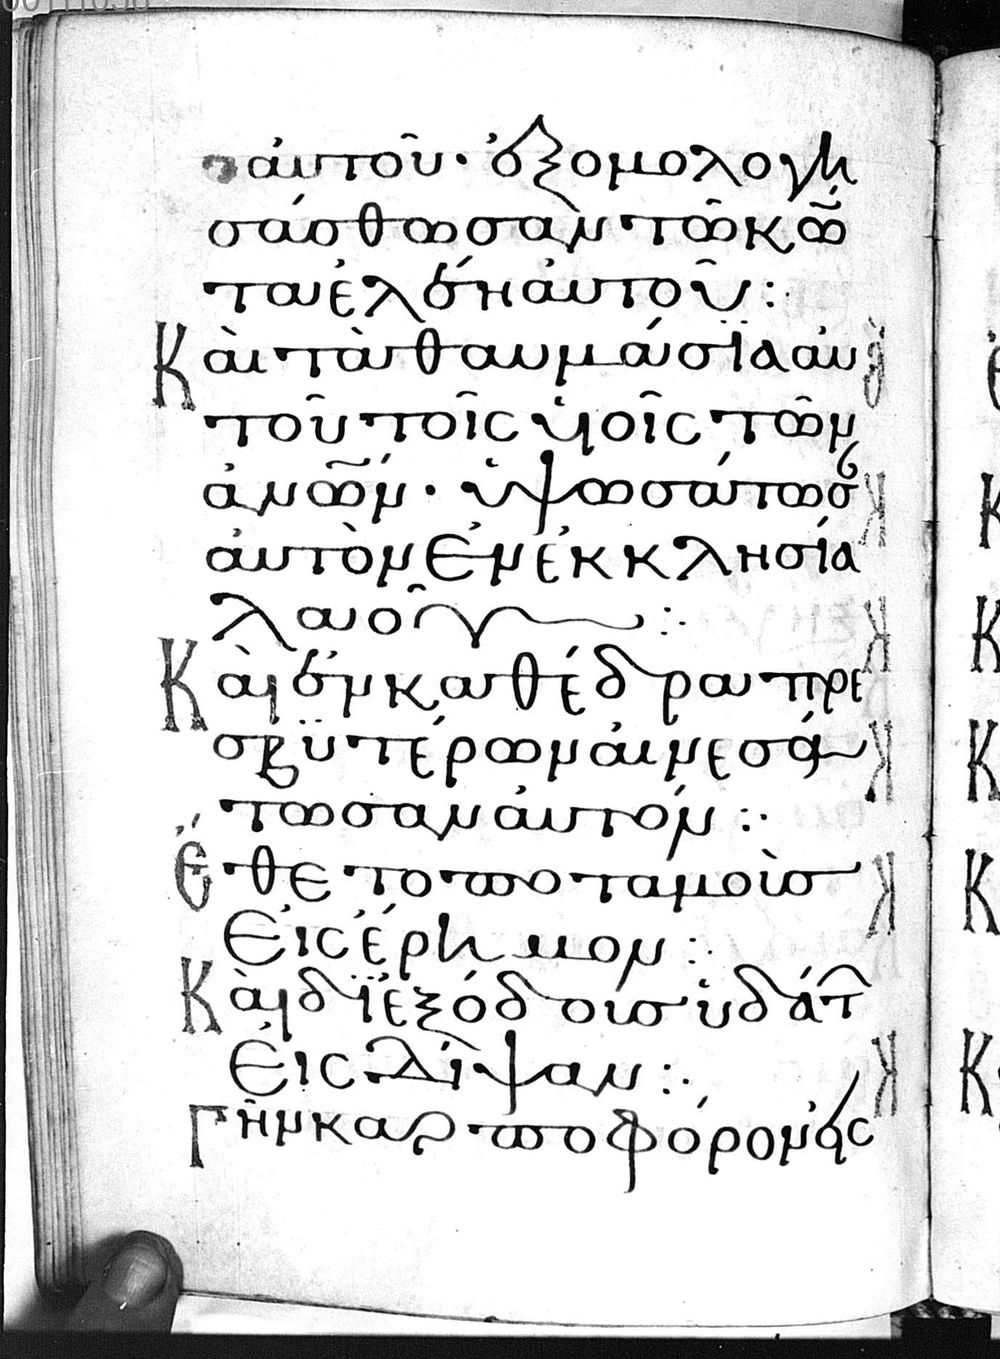 αὐτοῦ· ἐξομολογη
σάσθωσαν τῶ κῶ
τὰ ἐλέη αὐτοῦ:
Καὶ τὰ θαυμάσϊα αὐ
τοῦ τοῖς υἱοῖς τῶν
ἀνων· ὑψωσάτωσ
αὐτὸν ἐν ἐκκλησία
λαοῦ:
Καὶ ἐν καθέδρα πρε
σβϋτέρων αἰνεσά
τωσαν αὐτόν:
Ἔθετο ποταμοὺσ
εἰς ἔρημον:
Καὶ δϊεξόδουσ ὑδάτ
εἰς δίψαν:
Γῆν καρποφόρον εἰς